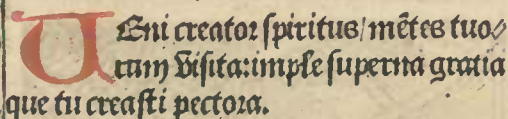 VEni creator spiritus/ mẽtes tuo⸗
rum visita: imple superna gratia
que tu creasti pectora.